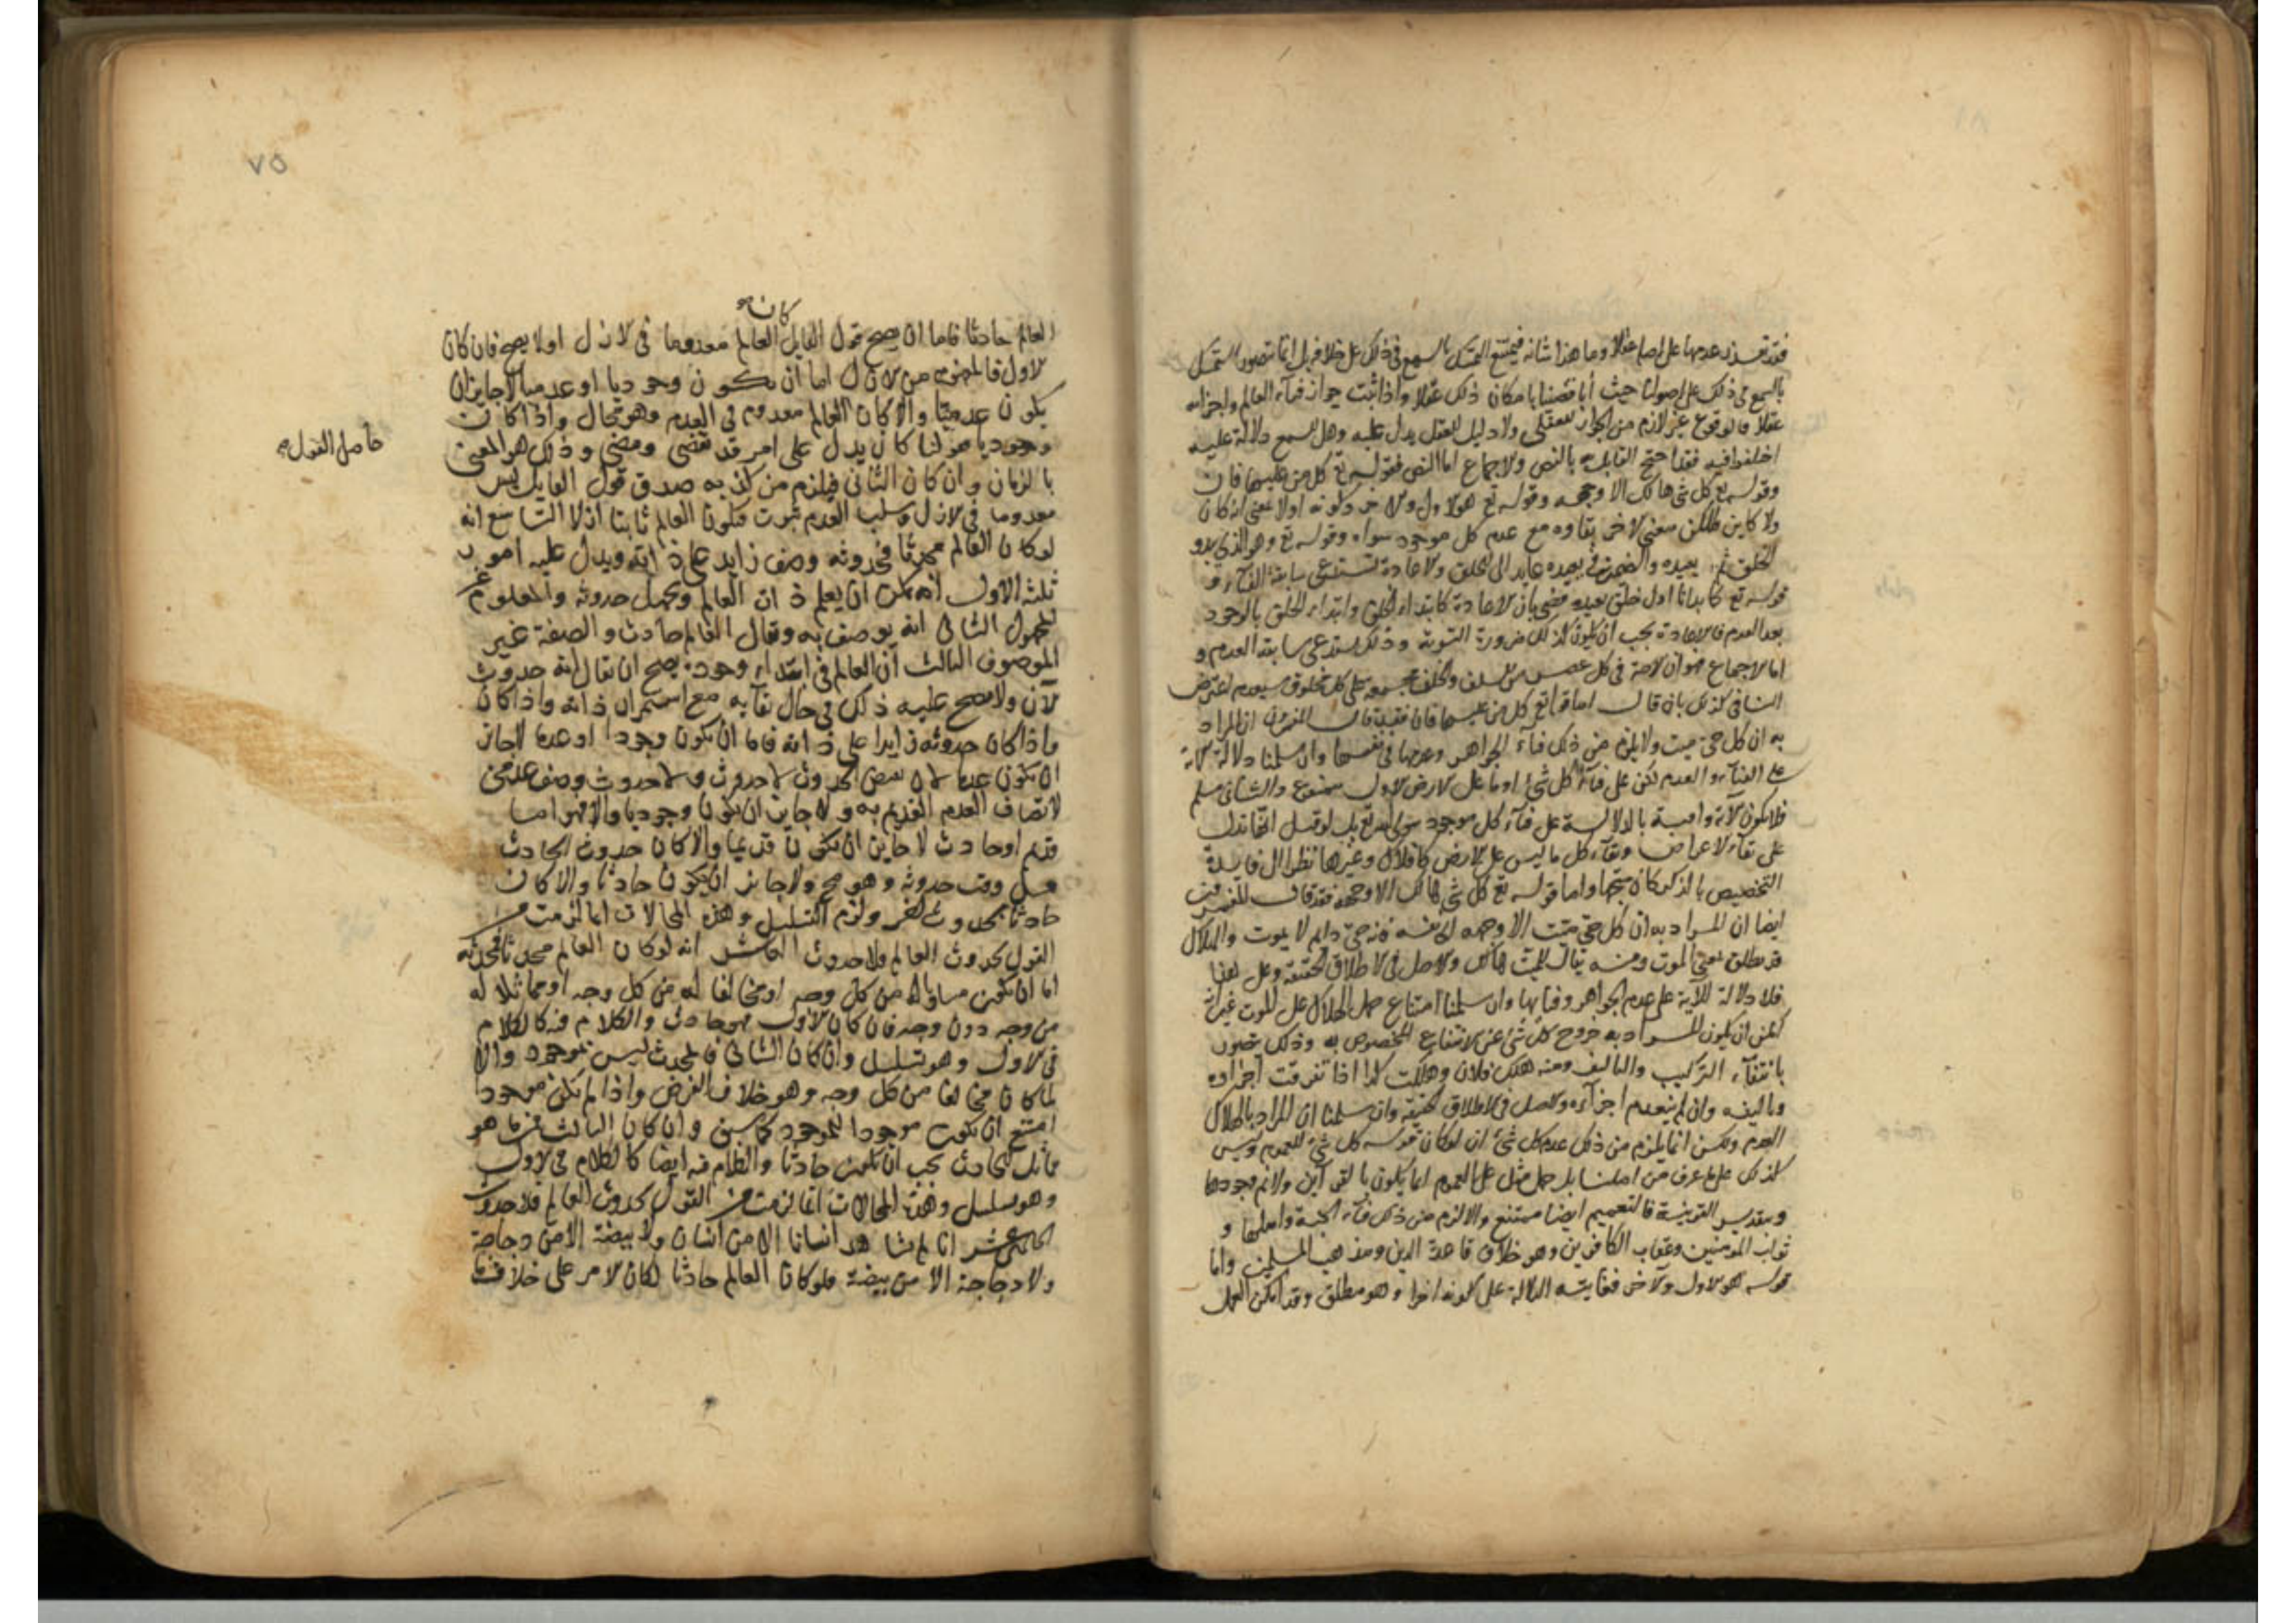 فقد تعذر عدمها على اصله عقلا وما هذا شانه فيمتنع التمسك بالسمع في ذلك على خلافه بل انما يتصور التمسك
بالسمع في ذلك على اصولنا حيث انا قضينا بامكان ذلك عقلا واذا ثبت جواز فناء العالم واجزائه
عقلا فالوقوع غير لازم من الجواز العقلي ولا دليل للعقل يدل عليه وهل للسمع دلالة عليه
اختلفوا فيه فقد احتج القايل به بالنص والاجماع اما النص فقوله تع كل من عليها فان
وقوله تع كل شي هالك الا وجهه وقوله تع هو الاول والاخر وكونه اولا بمعنى انه كان
ولا كاين فليكن معنى الاخر بقاوه مع عدم كل موجود سواه وقوله تع وهو الذي يبدو
الخلق ثم يعيده والضمير في يعيده عايد الى الخلق والاعادة تستدعي سابقة الفناء و
قوله تع كما بدانا اول خلق نعيده قضى بان الاعادة كابتداء الخلق وابتداء الخلق بالوجود
بعد العدم فالاعادة يجب ان يكون كذلك ضرورة التسوية وذلك يستدعي سابقة العدم و
اما الاجماع فهو ان الامة في كل عصر من السلف والخلف مجمعة على كل مخلوق سيعدم اعترض
النافي لذلك بان قال اما قوله تع كل من عليها فان فقد قال المفسرون ان المراد
به ان كل حي ميت ولا يلزم من ذلك فناء الجواهر وعدمها في نفسها وان سلمنا دلالة الاية
على الفناء والعدم لكن على فناء كل شئ او ما على الارض الاول ممنوع والثاني مسلم
فلا يكون الاية وافية بالدلالة على فناء كل موجود سوى الله تع بل لو قيل انها تدل
على بقاء الاعراض وبقاء كل ما ليس على الارض كالافلاك وغيرها نظرا الى فايدة
التخصيص بالذكر كان متجها واما قوله تع كل شي هالك الا وجهه فقد قال المفسرون
ايضا ان المراد به ان كل حي ميت الا وجهه اي نفسه فانه حي دايم لا يموت والهلاك
قد يطلق بمعنى الموت ومنه يقال للميت هالك والاصل في الاطلاق الحقيقة وعلى هذا
فلا دلالة للاية على عدم الجواهر وفنايها وان سلمنا امتناع حمل الهلاك على الموت غير انه
امكن ان يكون المراد به خروج كل شئ عن الانتفاع المخصوص به وذلك متصور
بانتفاء التركيب والتاليف ومنه هلك فلان وهلكت الدار اذا تفرقت اجزاوه
وتاليفه وان لم ينعدم اجزاؤه والاصل في الاطلاق الحقيقة وان سلمنا ان المراد بالهلاك
العدم ولكن انما يلزم من ذلك عدم كل شئ ان لو كان قوله كل شئ للعموم وليس
كذلك على ما عرف من اصلنا بل حمل مثل هذا على العموم انما يكون بالقراين ولا نم وجودها
وبتقدير القرينة فالتعميم ايضا ممتنع والا لزم من ذلك فناء الجنة واهلها و
ثواب المومنين وعقاب الكافرين وهو خلاف قاعدة الدين ومذهب المسلمين واما
قوله هو الاول والاخر فغايته الدلالة على كونه اخرا وهو مطلق وقد امكن العمل
٧٥
كان صح
العالم حادثا فاما ان يصح قول القايل العالم معدوما في الازل اولا يصح فان كان
الاول فالمفهوم من الازل اما ان يكون وجوديا او عدميا لا جايز ان
يكون عدميا والا كان العالم معدوم في العدم وهو محال واذا كان
وجوديا هو لنا كان يدل على امر قد تقضى ومضى وذلك هو المعنى
حاصل القول صح
بالزمان وان كان الثاني فيلزم من كذبه صدق قول القايل ليس
معدوما في الازل وسلب العدم ثبوت فيكون العالم ثابتا ازلا التاسع انه
لو كان العالم محدثا فحدوثه وصف زايد على ذاته ويدل عليه امور
ثلثة الاول انه يمكن ان يعلم ذات العالم ويجهل حدوثه والمعلوم غير
المجهول الثاني انه يوصف به ويقال العالم حادث والصفة غير
الموصوف الثالث ان العالم في ابتداء وجوده يصح ان يقال انه حدوث
الآن ولا يصح عليه ذلك في حال بقايه مع استمرار ذاته واذا كان
واذا كان حدوثه زايدا على ذاته فاما ان يكون وجودا او عدما لا جايز
ان يكون عدما لان نقيض الحدوث لا حدوث ولا حدوث وصف عدمي
لاتصاف العدم القديم به ولا جايز ان يكون وجوديا والا فهو اما
قديم او حادث لا جايز ان يكون قديما والا كان حدوث الحادث
قبل وقت حدوثه وهو مح ولا جايز ان يكون حادثا والا كان
حادثا بحدوث اخر ولزم التسلسل وهذه المحالات انما لزمت من
القول بحدوث العالم ولا حدوث العاشر انه لو كان العالم محدثا فمحدثه
اما ان يكون مساويا له من كل وجه او مخالفا له من كل وجه او مماثلا له
من وجه دون وجه فان كان الاول فهو حادث والكلام فيه كالكلام
في الاول وهو تسلسل وان كان الثاني فالمحدث ليس بموجود والا
لما كان مخالفا من كل وجه وهو خلاف الفرض واذا لم يكن موجودا
امتنع ان يكون موجدا للموجود كما سبق وان كان الثالث فمن ما هو
مماثل للحادث يجب ان يكون حادثا والكلام فيه ايضا كالكلام في الاول
وهو تسلسل وهذه المحالات انما لزمت من القول بحدوث العالم فلا حدوث
الحادي عشر انا لم نشاهد انسانا الا من انسان ولا بيضة الا من دجاجة
ولا دجاجة الا من بيضة فلو كان العالم حادثا لكان الامر على خلاف ما